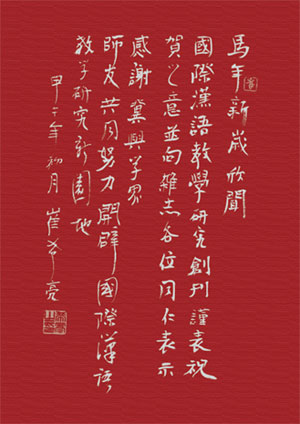 馬年新歲欣聞
國際漢語教學研究創刊謹表祝
賀之意並向雜志各位同仁表示
感謝 冀與学界
師友共同努力開辟國際漢語
教学研究新園地
甲午年初月 崔希亮